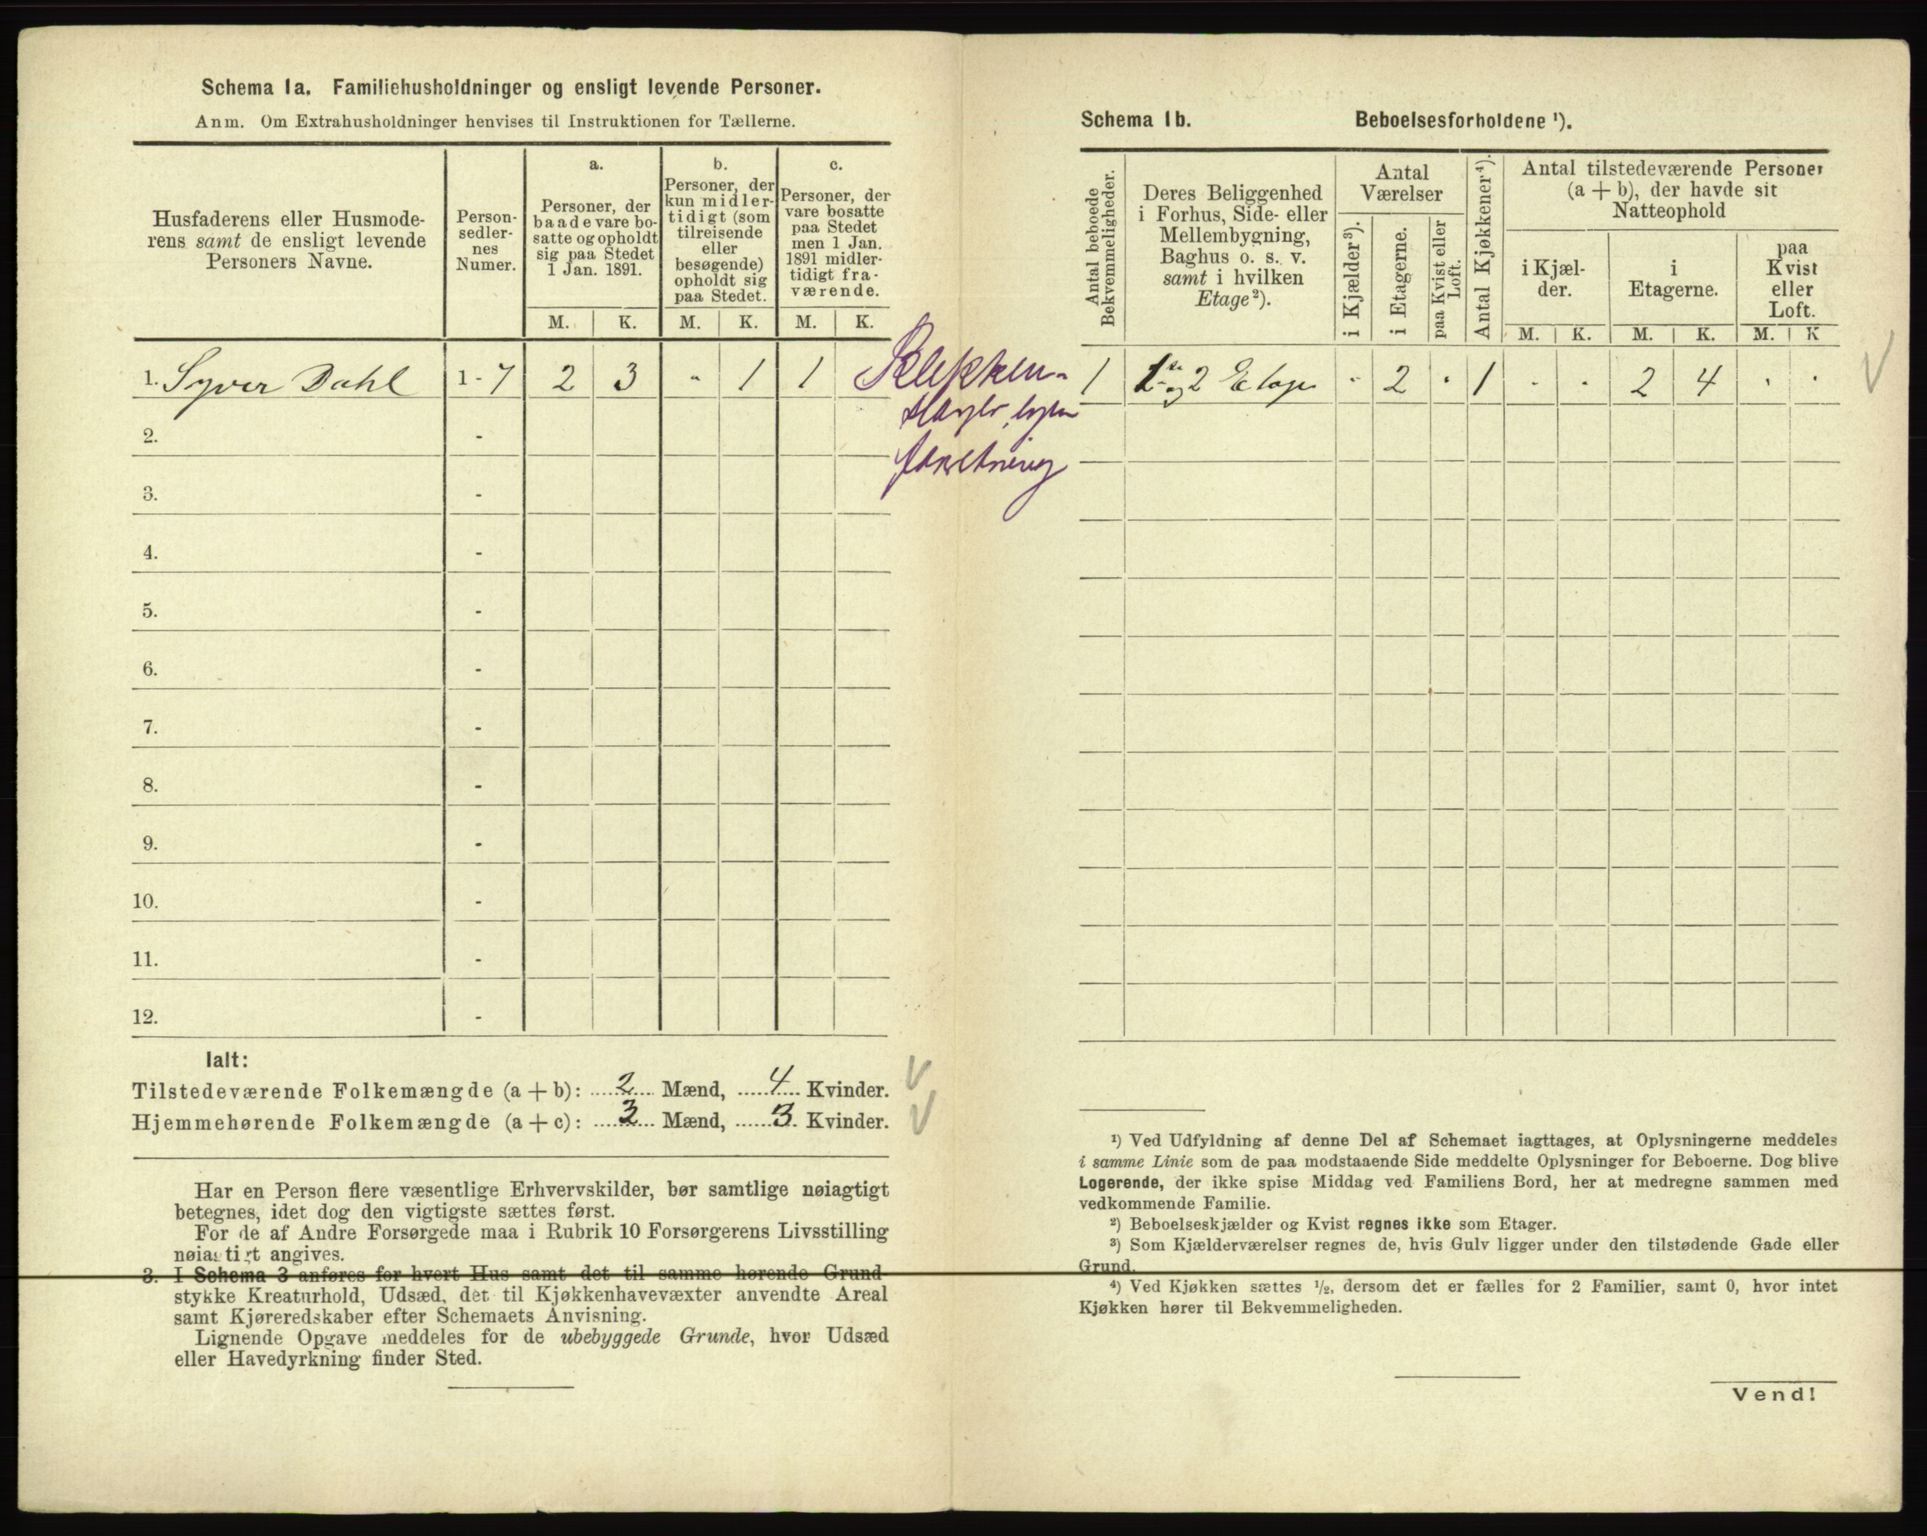 Schema 1a. Familiehusholdninger og ensligt levende Personer.
Anm. Om Extrahusholdninger henvises til Instruktionen for Tællerne.
Husfaderens eller Husmode-
rens samt de ensligt levende
Personers Navne.
Person-
sedler-
nes
Numer.
a.
Personer, der
baade vare bo-
satte og opholdt
sig paa Stedet
1 Jan. 1891.
b.
Personer, der
kun midler-
tidigt (som
tilreisende
eller
besøgende)
opholdt sig
paa Stedet.
c.
Personer, der
vare bosatte
paa Stedet
men 1 Jan.
1891 midler-
tidigt fra-
værende.
M. K. M. K. M. K.
1. Syver Dahl 1 - 7 2 3 - 1 1
2. -
3. -
4. -
5. -
6. -
7. -
8. -
9. -
10. -
11. -
12. -
Ialt:
Tilstedeværende Folkemængde (a + b): 2 Mænd, 4 Kvinder.
Hjemmehørende Folkemængde (a + c): 3 Mænd, 3 Kvinder.
Har en Person flere væsentlige Erhvervskilder, bør samtlige nøiagtigt
betegnes, idet dog den vigtigste sættes først.
For de af Andre Forsørgede maa i Rubrik 10 Forsørgerens Livsstilling
nøiagtigt angives.
3. I Schema 3 anføres for hvert Hus samt det til samme hørende Grund-
stykke Kreaturhold, Udsæd, det til Kjøkkenhavevæxter anvendte Areal
samt Kjøreredskaber efter Schemaets Anvisning.
Lignende Opgave meddeles for de ubebyggede Grunde, hvor Udsæd
eller Havedyrkning finder Sted.
Schema 1b. Beboelsesforholdene ¹).
Antal beboede
Bekvemmeligheder.
Deres Beliggenhed
i Forhus, Side- eller
Mellembygning,
Baghus o. s. v.
samt i hvilken
Etage²).
Antal
Værelser
i Kjælder³).
i Etagerne.
paa Kvist eller
Loft.
Antal Kjøkkener⁴).
Antal tilstedeværende Personer
(a + b), der havde sit
Natteophold
i Kjæl-
der.
i
Etagerne.
paa
Kvist
eller
Loft.
M. K. M. K. M. K
1 1 og 2 Etage - 2 - 1 - - 2 4 - -
¹) Ved Udfyldning af denne Del af Schemaet iagttages, at Oplysningerne meddeles
i samme Linie som de paa modstaaende Side meddelte Oplysninger for Beboerne. Dog blive
Logerende, der ikke spise Middag ved Familiens Bord, her at medregne sammen med
vedkommende Familie.
²) Beboelseskjælder og Kvist regnes ikke som Etager.
³) Som Kjælderværelser regnes de, hvis Gulv ligger under den tilstødende Gade eller
Grund.
⁴) Ved Kjøkken sættes ½, dersom det er fælles for 2 Familier, samt 0, hvor intet
Kjøkken hører til Bekvemmeligheden.
Vend!